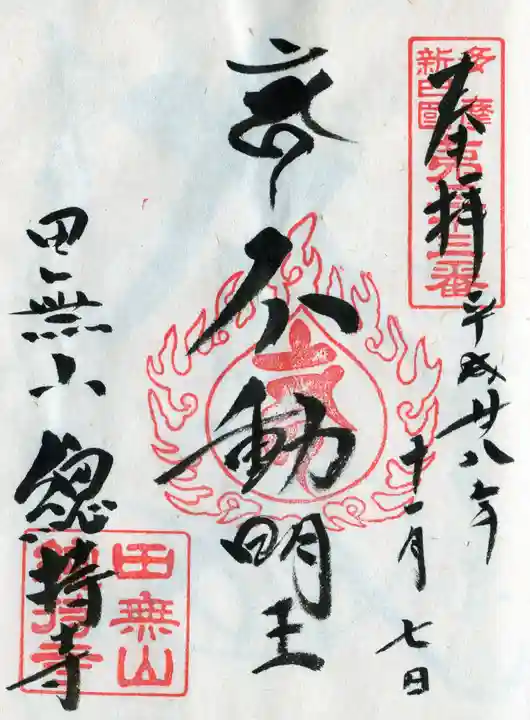 奉拝
平成廿八年
十一月七日
不動明王
田無山
総持寺
多摩
新四国
第三番
田無山
総持寺